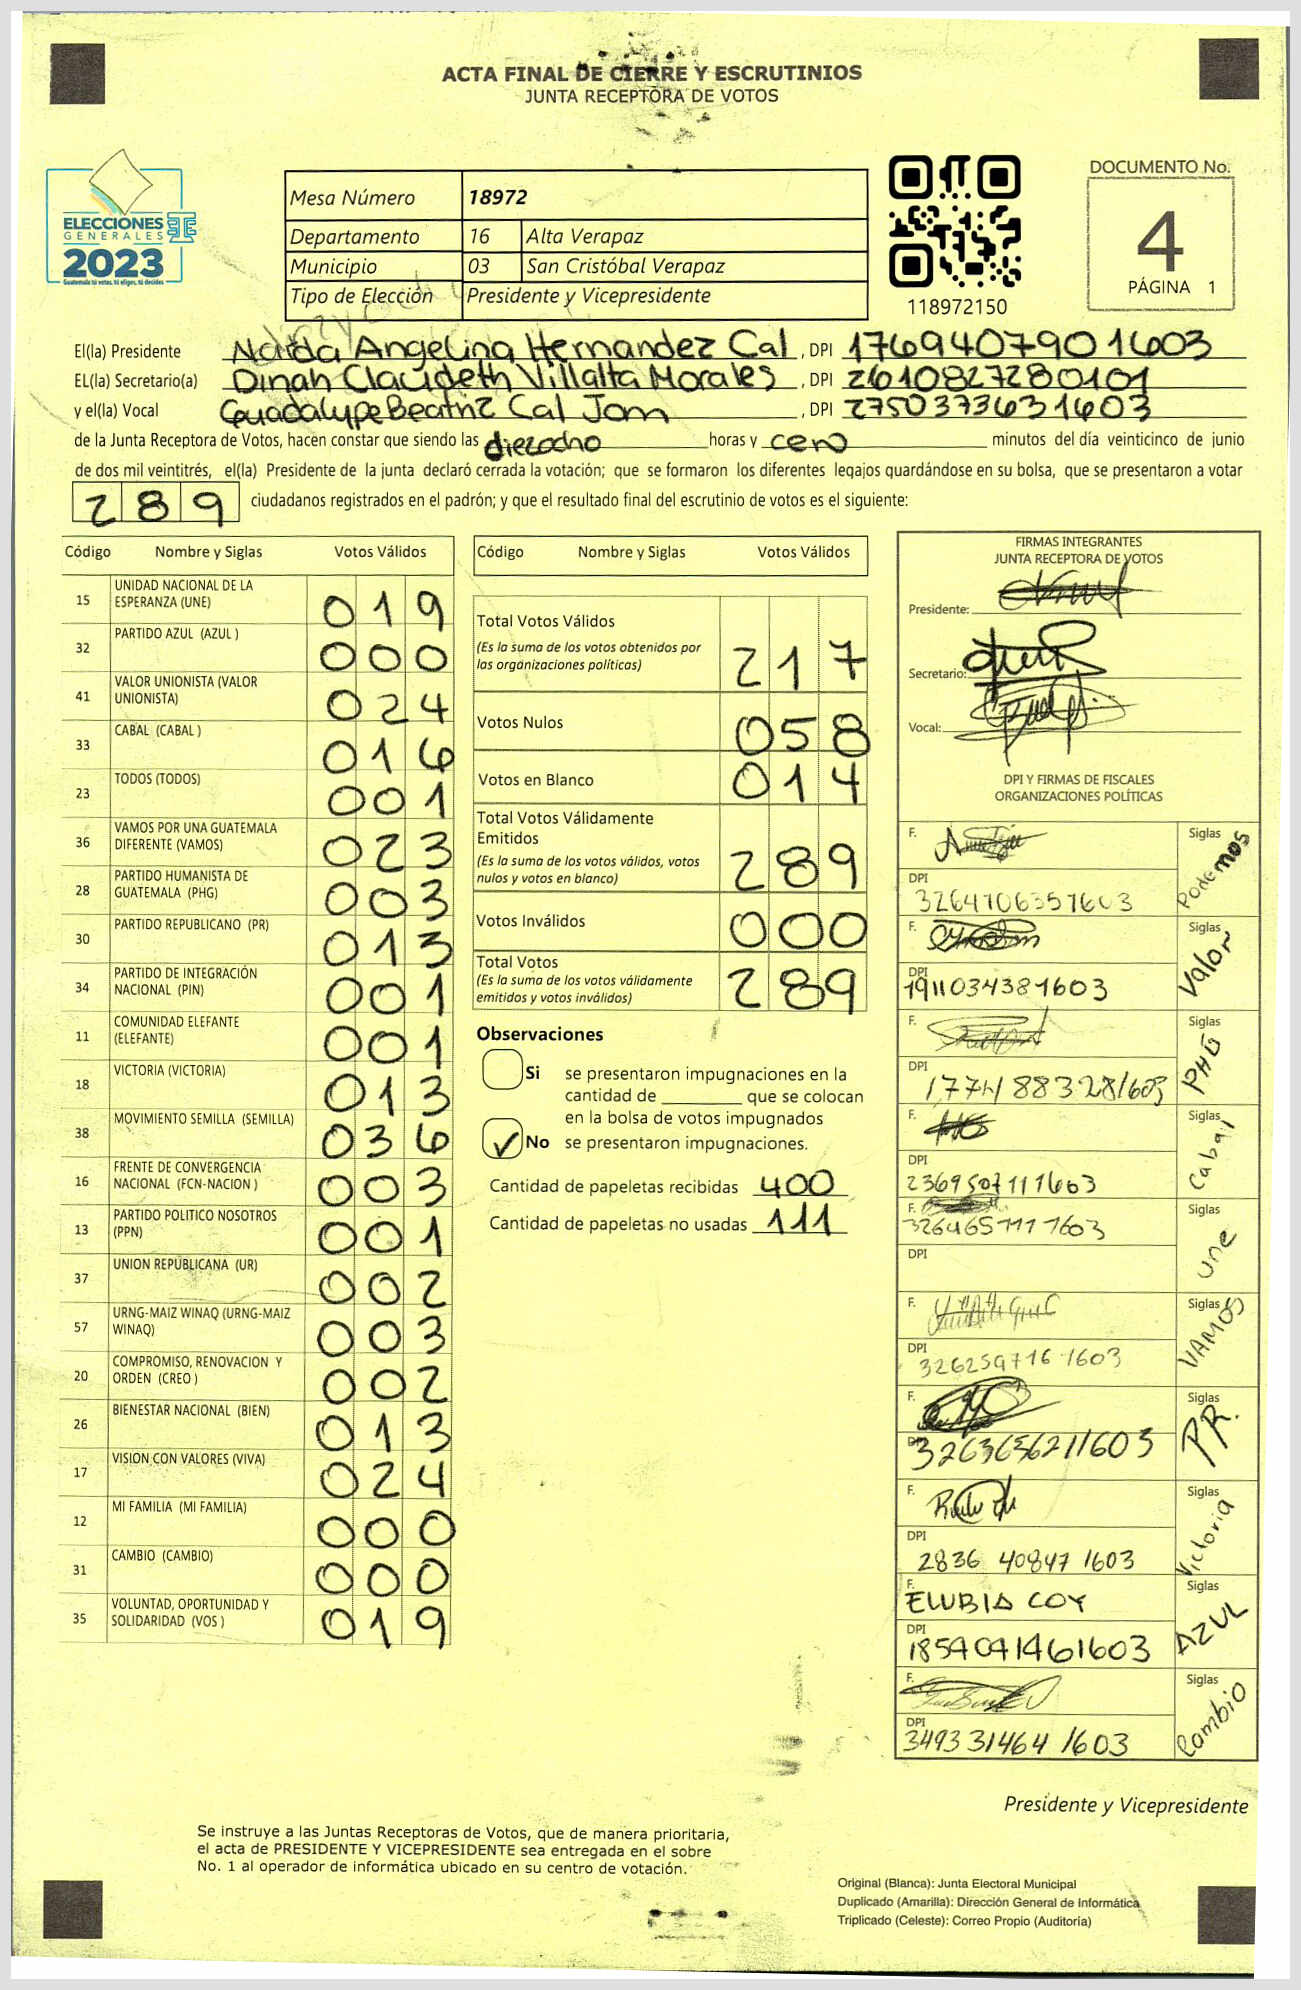 ACTA FINAL DE CIERRE Y ESCRUTINIOS
JUNTA RECEPTORA DE VOTOS
ELECCIONES
GENERALES
2023
Guatemala tú votas, tú eliges, tú decides
Mesa Número 18972
Departamento 16 Alta Verapaz
Municipio 03 San Cristóbal Verapaz
Tipo de Elección Presidente y Vicepresidente
118972150
DOCUMENTO No.
4
PÁGINA 1
El(la) Presidente Nalda Angelina Hernandez Cal , DPI 1769407901603
EL(la) Secretario(a) Dinah Claudeth Villalta Morales , DPI 2610827280101
y el(la) Vocal Guadalupe Beatriz Cal Jom , DPI 2750373631603
de la Junta Receptora de Votos, hacen constar que siendo las dieciocho horas y cero minutos del día veinticinco de junio
de dos mil veintitrés, el(la) Presidente de la junta declaró cerrada la votación; que se formaron los diferentes legajos quardándose en su bolsa, que se presentaron a votar
289 ciudadanos registrados en el padrón; y que el resultado final del escrutinio de votos es el siguiente:
Código Nombre y Siglas Votos Válidos
15 UNIDAD NACIONAL DE LA ESPERANZA (UNE) 019
32 PARTIDO AZUL (AZUL ) 000
41 VALOR UNIONISTA (VALOR UNIONISTA) 024
33 CABAL (CABAL ) 016
23 TODOS (TODOS) 001
36 VAMOS POR UNA GUATEMALA DIFERENTE (VAMOS) 023
28 PARTIDO HUMANISTA DE GUATEMALA (PHG) 003
30 PARTIDO REPUBLICANO (PR) 013
34 PARTIDO DE INTEGRACIÓN NACIONAL (PIN) 001
11 COMUNIDAD ELEFANTE (ELEFANTE) 001
18 VICTORIA (VICTORIA) 013
38 MOVIMIENTO SEMILLA (SEMILLA) 036
16 FRENTE DE CONVERGENCIA NACIONAL (FCN-NACION ) 003
13 PARTIDO POLITICO NOSOTROS (PPN) 001
37 UNION REPUBLICANA (UR) 002
57 URNG-MAIZ WINAQ (URNG-MAIZ WINAQ) 003
20 COMPROMISO, RENOVACION Y ORDEN (CREO ) 002
26 BIENESTAR NACIONAL (BIEN) 013
17 VISION CON VALORES (VIVA) 024
12 MI FAMILIA (MI FAMILIA) 000
31 CAMBIO (CAMBIO) 000
35 VOLUNTAD, OPORTUNIDAD Y SOLIDARIDAD (VOS ) 019
Código Nombre y Siglas Votos Válidos
Total Votos Válidos 217
(Es la suma de los votos obtenidos por
las organizaciones políticas)
Votos Nulos 058
Votos en Blanco 014
Total Votos Válidamente
Emitidos 289
(Es la suma de los votos válidos, votos
nulos y votos en blanco)
Votos Inválidos 000
Total Votos 289
(Es la suma de los votos válidamente
emitidos y votos inválidos)
Observaciones
Si se presentaron impugnaciones en la
cantidad de ________ que se colocan
en la bolsa de votos impugnados
✓ No se presentaron impugnaciones.
Cantidad de papeletas recibidas 400
Cantidad de papeletas no usadas 111
FIRMAS INTEGRANTES
JUNTA RECEPTORA DE VOTOS
Presidente:
Secretario:
Vocal:
DPI Y FIRMAS DE FISCALES
ORGANIZACIONES POLÍTICAS
F. Siglas Podemos
DPI 3264706357603
F. Siglas Valor
DPI 1911034381603
F. Siglas PHG
DPI 17741883281603
F. Siglas Cabal
DPI 2369507111603
F. Siglas une
3264657171603
DPI
F. Siglas VAMOS
DPI 3262597161603
F. Siglas PR.
DPI 3263656211603
F. Siglas Victoria
DPI 2836 40847 1603
F. ELUBIA COY Siglas AZUL
DPI 1859091461603
F. Siglas Cambio
DPI 349331464 1603
Presidente y Vicepresidente
Se instruye a las Juntas Receptoras de Votos, que de manera prioritaria,
el acta de PRESIDENTE Y VICEPRESIDENTE sea entregada en el sobre
No. 1 al operador de informática ubicado en su centro de votación.
Original (Blanca): Junta Electoral Municipal
Duplicado (Amarilla): Dirección General de Informática
Triplicado (Celeste): Correo Propio (Auditoría)